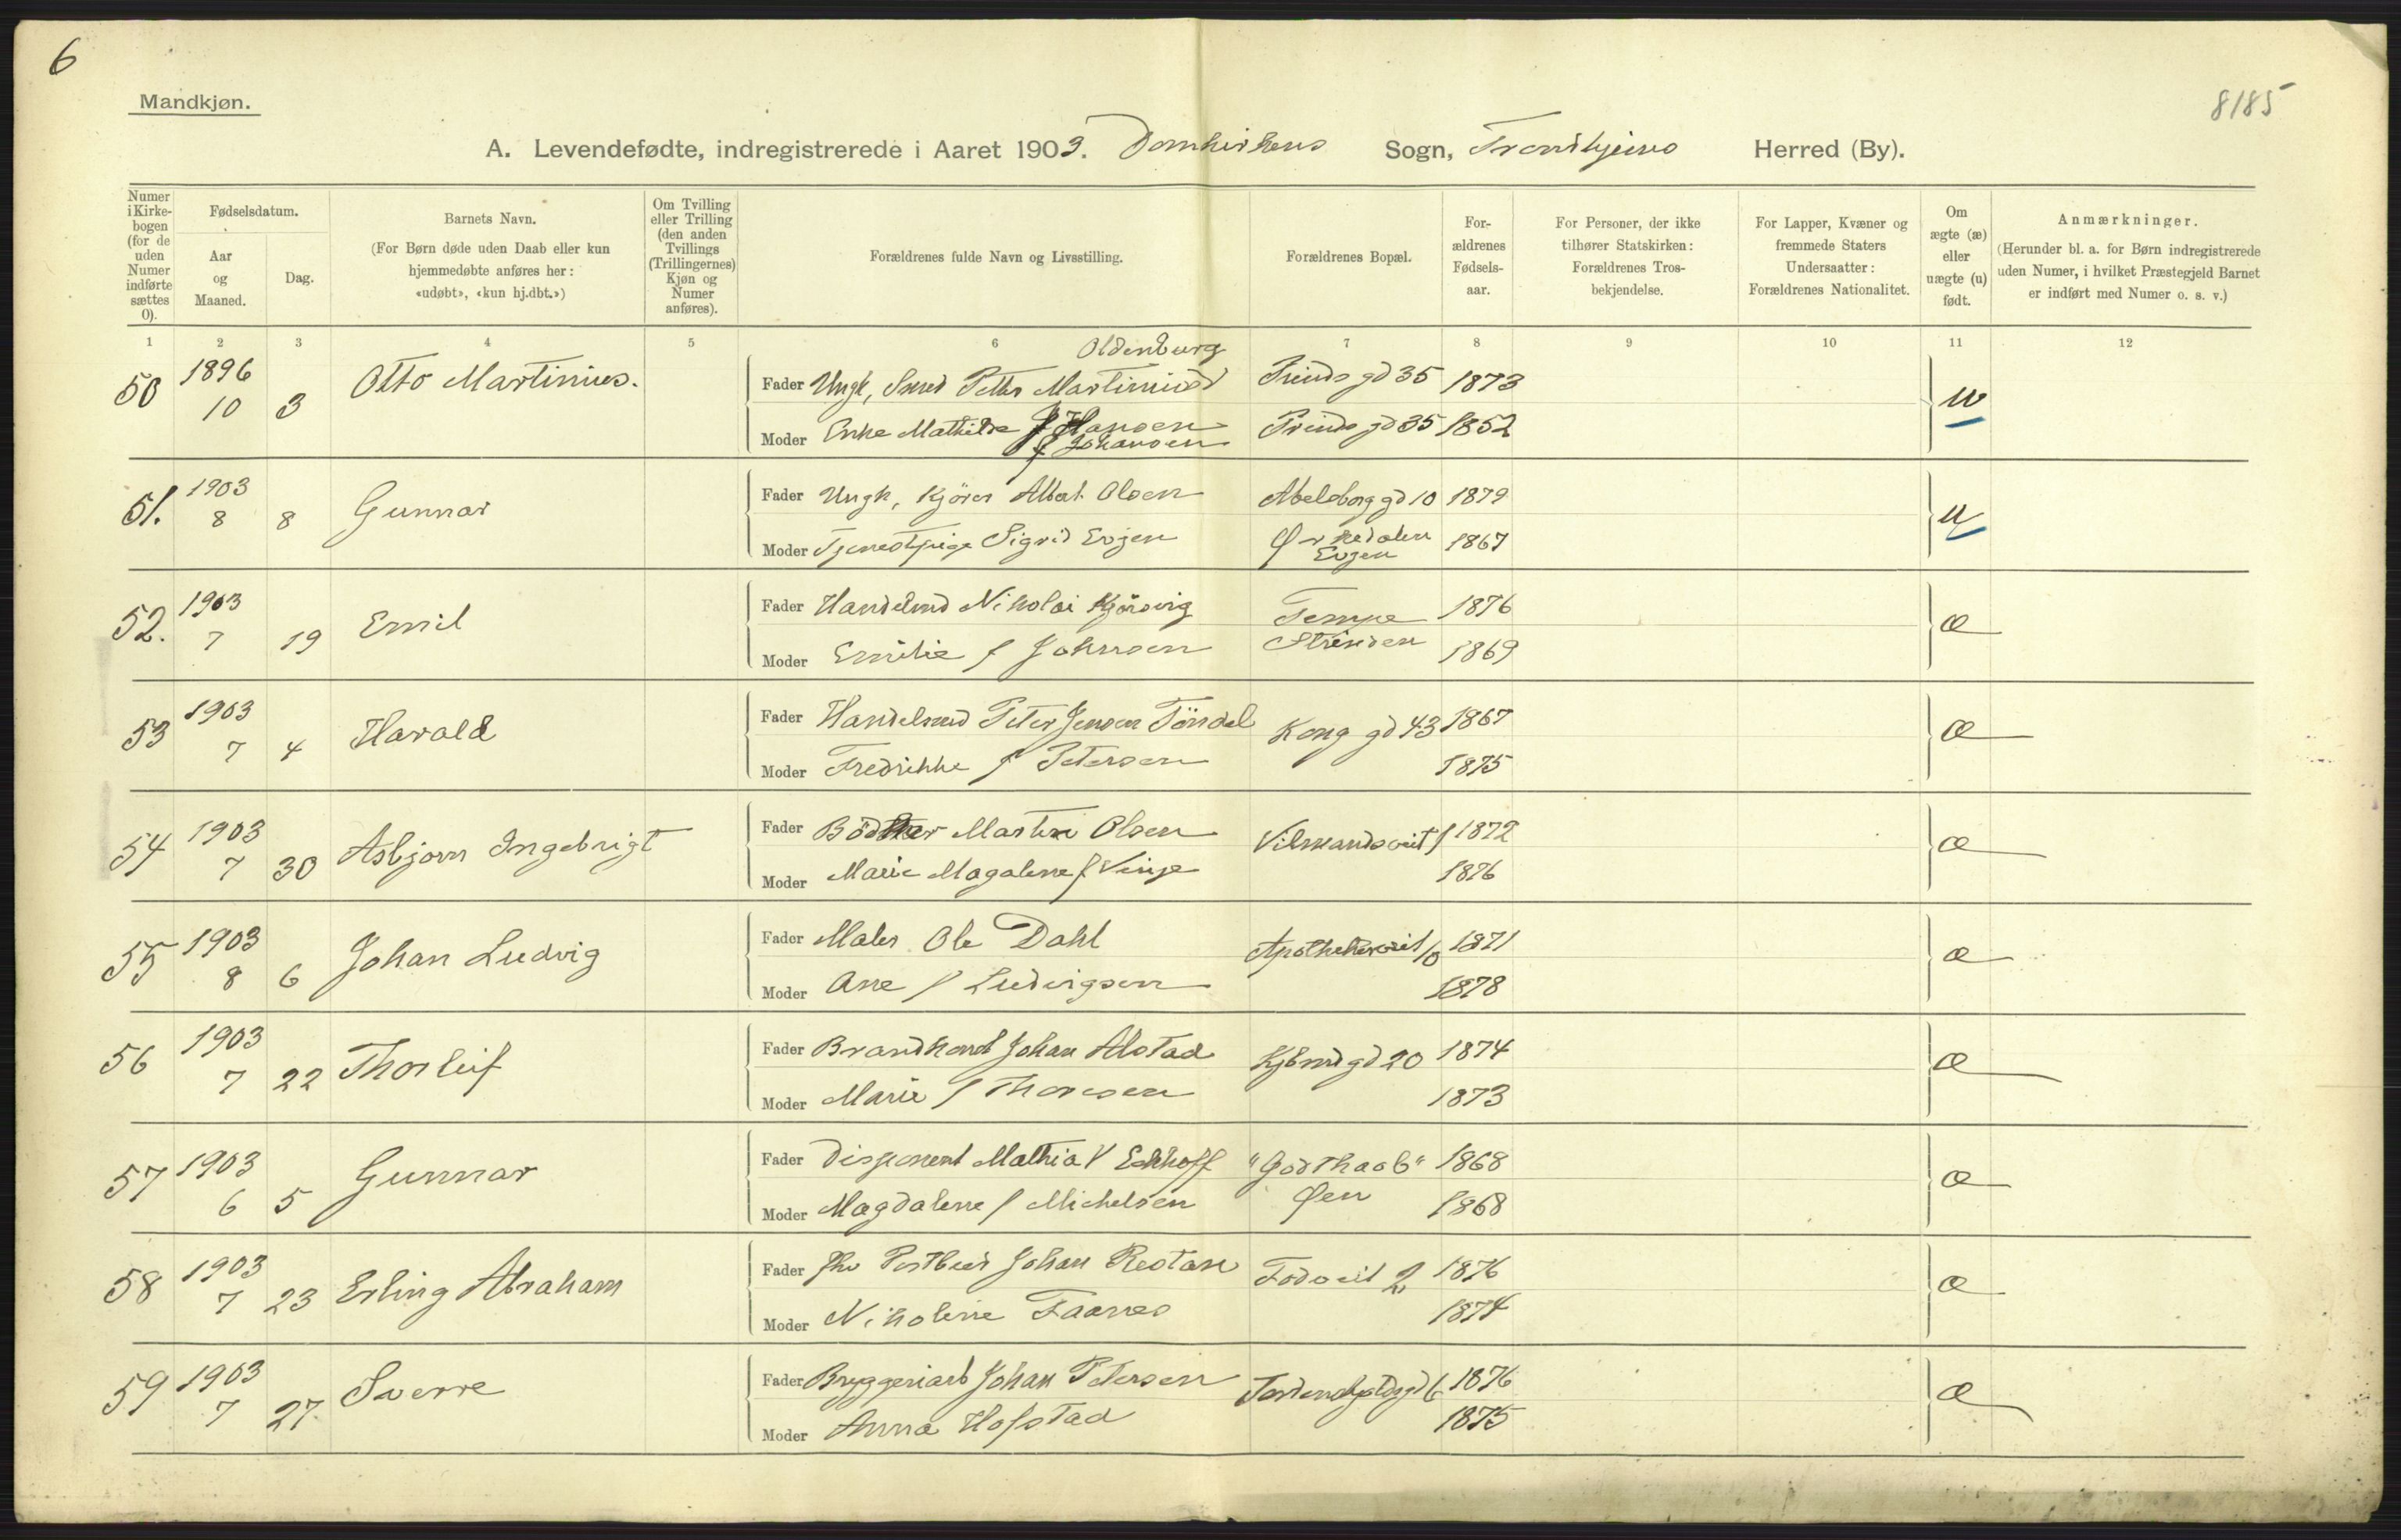 6
Mandkjøn.
8185
A. Levendefødte, indregistrerede i Aaret 1903. Domkirkens Sogn, Trondhjems Herred (By).
Numer i Kirke-bogen (for de uden Numer indførte sættes 0).
Fødselsdatum.
Aar og Maaned.
Dag.
Barnets Navn.
(For Børn døde uden Daab eller kun hjemmedøbte anføres her: «udøbt», «kun hj.dbt.»)
Om Tvilling eller Trilling (den anden Tvillings (Trillingernes) Kjøn og Numer anføres).
Forældrenes fulde Navn og Livsstilling.
Forældrenes Bopæl.
For-ældrenes Fødsels-aar.
For Personer, der ikke tilhører Statskirken: Forældrenes Tros-bekjendelse.
For Lapper, Kvæner og fremmede Staters Undersaatter: Forældrenes Nationalitet.
Om ægte (æ) eller uægte (u) født.
Anmærkninger.
(Herunder bl. a. for Børn indregistrerede uden Numer, i hvilket Præstegjeld Barnet er indført med Numer o. s. v.)
1 2 3 4 5 6 7 8 9 10 11 12
Oldenburg
50 1896 10 3 Otto Martinius. Fader Ungk, Smed Petter Martinius Prinds gd 35 1873 u
Moder Enke Mathilde Hansen f Johansen Prinds gd 35 1852
51. 1903 8 8 Gunnar Fader Ungk, Kjörer Albert Olsen Abelsborg gd 10 1879 u
Moder Tjenestpige Sigrid Evjen Ørkedalen Evjen 1867
52. 1903 7 19 Emil Fader Handelsmd Nikolai Kjörsvig Tempe 1876 æ
Moder Emilie f Johnsen Strinden 1869
53 1903 7 4 Harald Fader Handelsmd Peter Jensen Töndel Kong gd 43 1867 æ
Moder Fredrikke f Petersen 1875
54 1903 7 30 Asbjørn Ingebrigt Fader Bödker Martin Olsen Vilmandsveit 1 1872 æ
Moder Marie Magalene f Vinge 1876
55 1903 8 6 Johan Ludvig Fader Maler Ole Dahl Apothekerveit 10 1871 æ
Moder Ane f Ludvigsen 1878
56 1903 7 22 Thorleif Fader Brandkonst Johan Alstad Kjbmdgd 20 1874 æ
Moder Marie f Thoresen 1873
57 1903 6 5 Gunnar Fader Disponent Mathias V Eckhoff "Godthaab" 1868 æ
Moder Magdalene f Michelsen Øen 1868
58 1903 7 23 Erling Abraham Fader Postbud Johan Restan 2 1876 æ
Moder Nikoline Faanes 1874
59 1903 7 27 Sverre Fader Bryggeriarb Johan Petersen Tordenskjoldsgd 6 1876 æ
Moder Anna Hofstad 1875